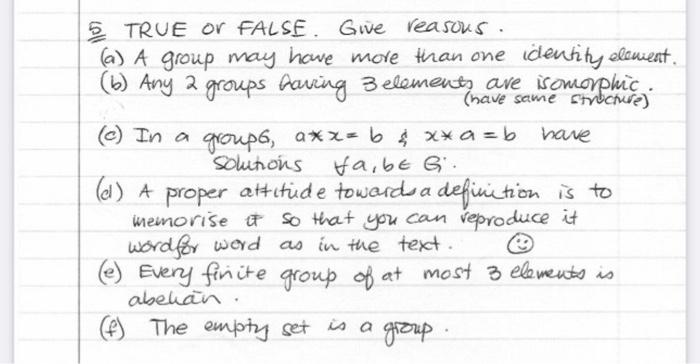 5 TRUE or FALSE. Give reasons.
(a) A group may have more than one identity element.
(b) Any 2 groups having 3 elements are isomorphic.
(have same structure)
(c) In a group G, a*x=b & x*a=b have
solutions ∀a,b∈G.
(d) A proper attitude towards a definition is to
memorise it so that you can reproduce it
word for word as in the text. ☺
(e) Every finite group of at most 3 elements is
abelian.
(f) The empty set is a group.